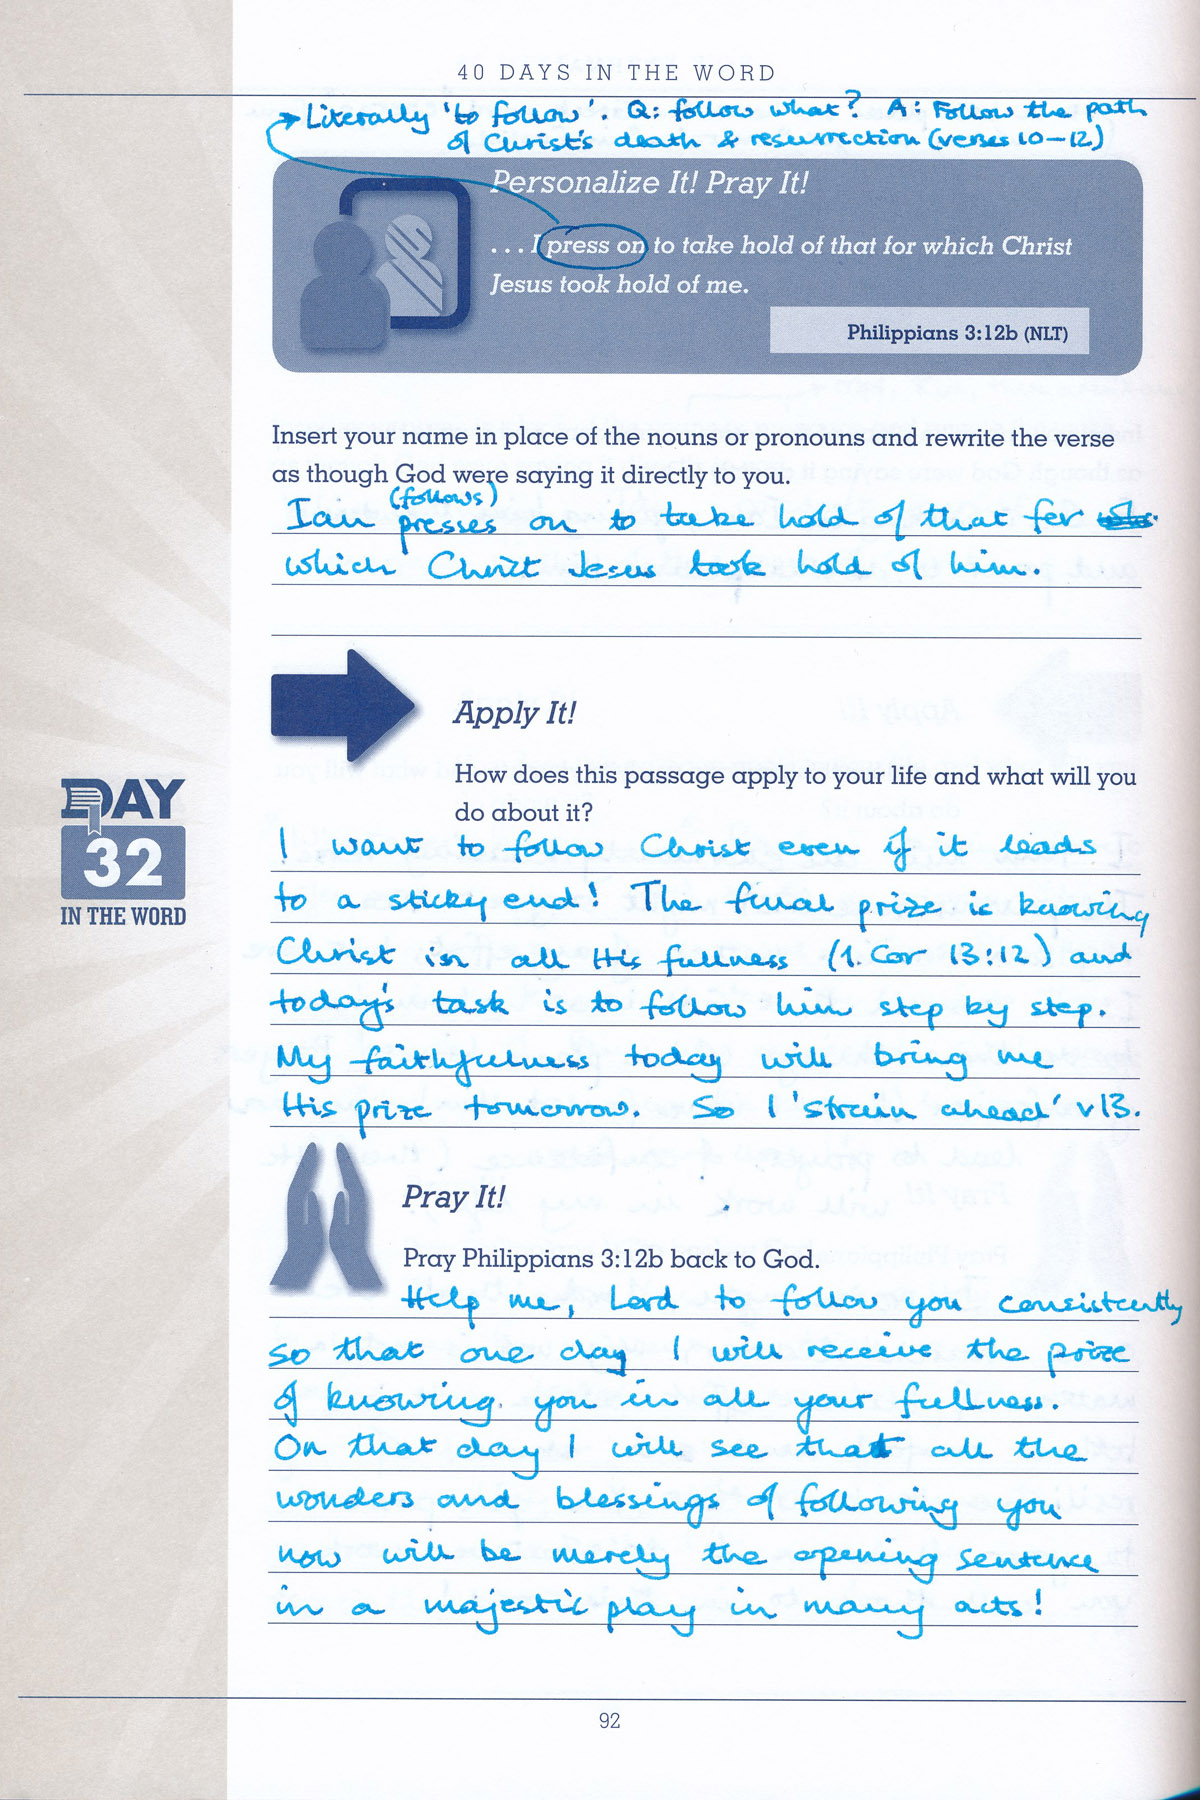 40 DAYS IN THE WORD
Literally 'to follow'. Q: follow what? A: Follow the path
of Christ's death & resurrection (verses 10-12)
Personalize It! Pray It!
. . . I press on to take hold of that for which Christ
Jesus took hold of me.
Philippians 3:12b (NLT)
Insert your name in place of the nouns or pronouns and rewrite the verse
as though God were saying it directly to you.
(follows)
Ian presses on to take hold of that for
which Christ Jesus took hold of him.
Apply It!
How does this passage apply to your life and what will you
do about it?
I want to follow Christ even if it leads
to a sticky end! The final prize is knowing
Christ in all His fullness (1. Cor 13:12) and
today's task is to follow him step by step.
My faithfulness today will bring me
His prize tomorrow. So I 'strain ahead' v13.
DAY
32
IN THE WORD
Pray It!
Pray Philippians 3:12b back to God.
Help me, Lord to follow you consistently
so that one day I will receive the prize
of knowing you in all your fullness.
On that day I will see that all the
wonders and blessings of following you
now will be merely the opening sentence
in a majestic play in many acts!
92